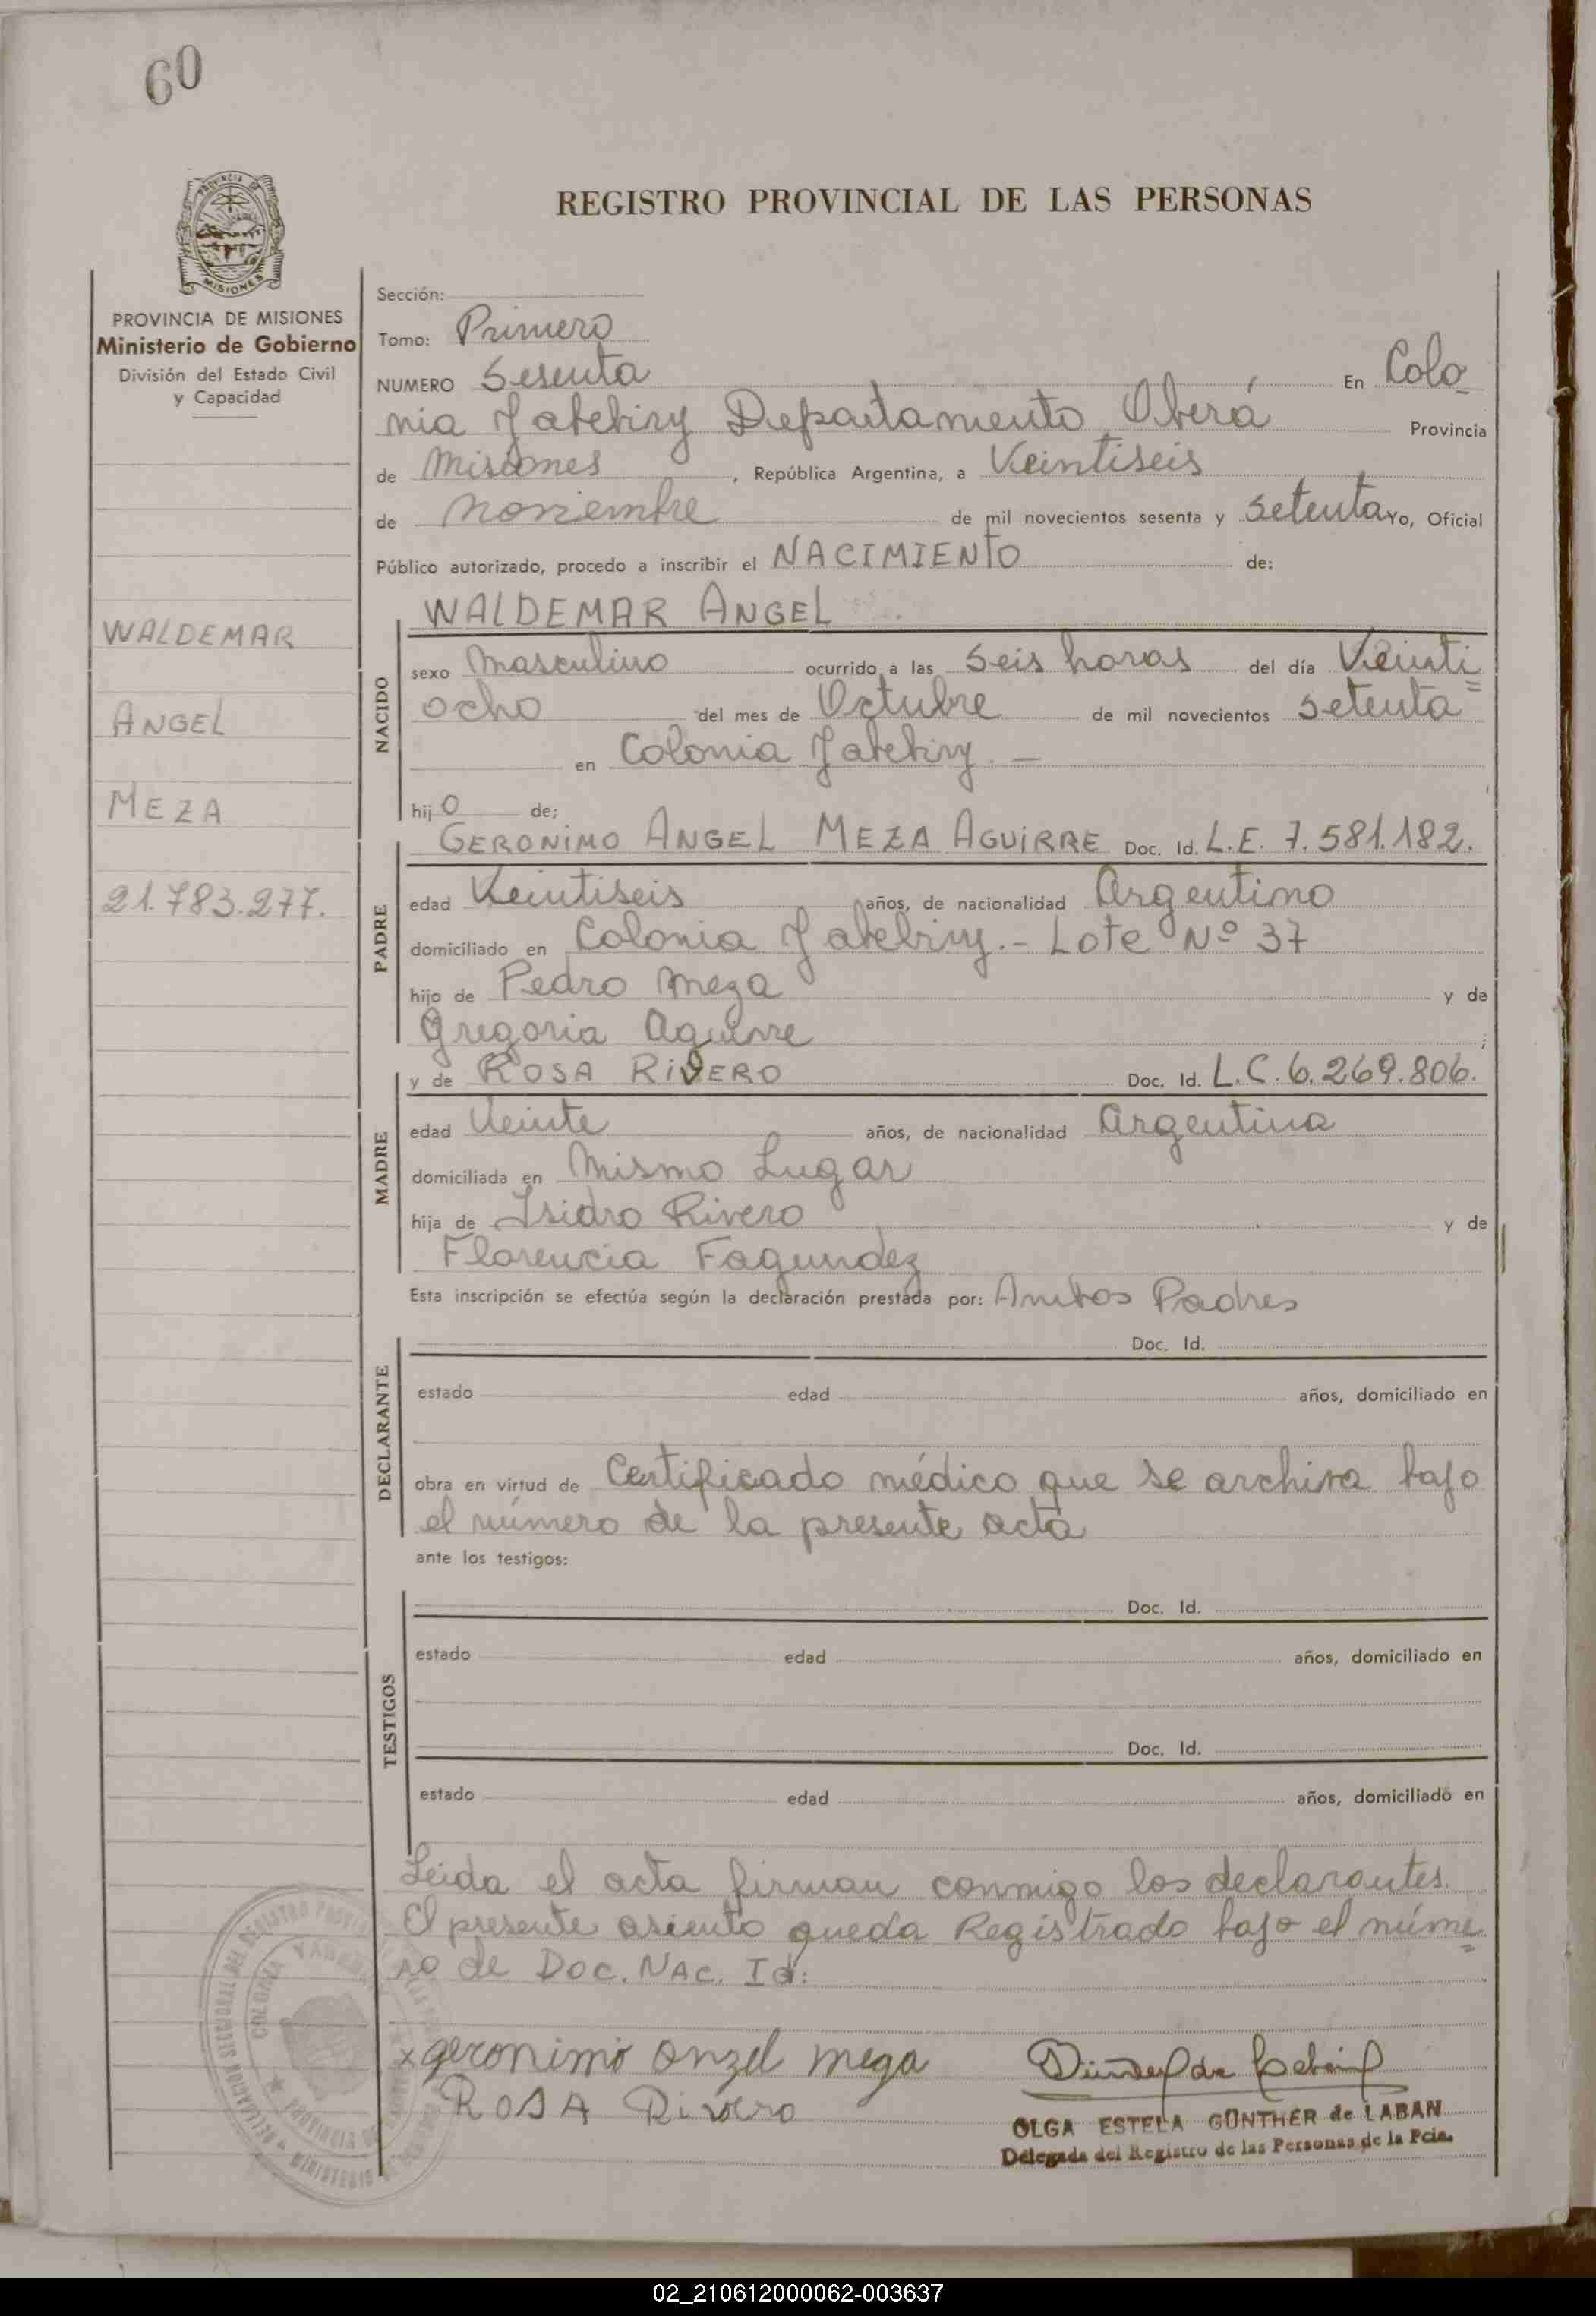 60
REGISTRO PROVINCIAL DE LAS PERSONAS
PROVINCIA DE MISIONES
Ministerio de Gobierno
División del Estado Civil
y Capacidad
WALDEMAR
ANGEL
MEZA
21.783.277.
Sección:
Tomo: Primero
NUMERO Sesenta En Colo
nia Yabebiry Departamento Oberá Provincia
de Misiones, República Argentina, a Veintiseis
de noviembre de mil novecientos sesenta y setenta Yo, Oficial
Público autorizado, procedo a inscribir el NACIMIENTO de:
NACIDO
WALDEMAR ANGEL
sexo Masculino ocurrido a las seis horas del día Veinti
ocho del mes de Octubre de mil novecientos setenta
en Colonia Yabebiry. —
hijo de;
PADRE
GERONIMO ANGEL MEZA AGUIRRE Doc. Id. L.E. 7.581.182.
edad Veintiseis años, de nacionalidad Argentino
domiciliado en Colonia Yabebiry.- Lote Nº 37
hijo de Pedro Meza y de
Gregoria Aguirre;
MADRE
y de ROSA RIVERO Doc. Id. L.C. 6.269.806.
edad Veinte años, de nacionalidad Argentina
domiciliada en Mismo Lugar
hija de Isidro Rivero y de
Florencia Fagundez
Esta inscripción se efectúa según la declaración prestada por: Ambos Padres
DECLARANTE
Doc. Id.
estado edad años, domiciliado en
obra en virtud de Certificado médico que se archiva bajo
el número de la presente acta
ante los testigos:
TESTIGOS
Doc. Id.
estado edad años, domiciliado en
Doc. Id.
estado edad años, domiciliado en
Leida el acta firman conmigo los declarantes.
El presente asiento queda Registrado bajo el núme
ro de DOC. NAC. Id:
x geronimo anzel meza
ROSA Rivero
OLGA ESTELA GÜNTHER de LABAN
Delegada del Registro de las Personas de la Pcia.
02_210612000062-003637